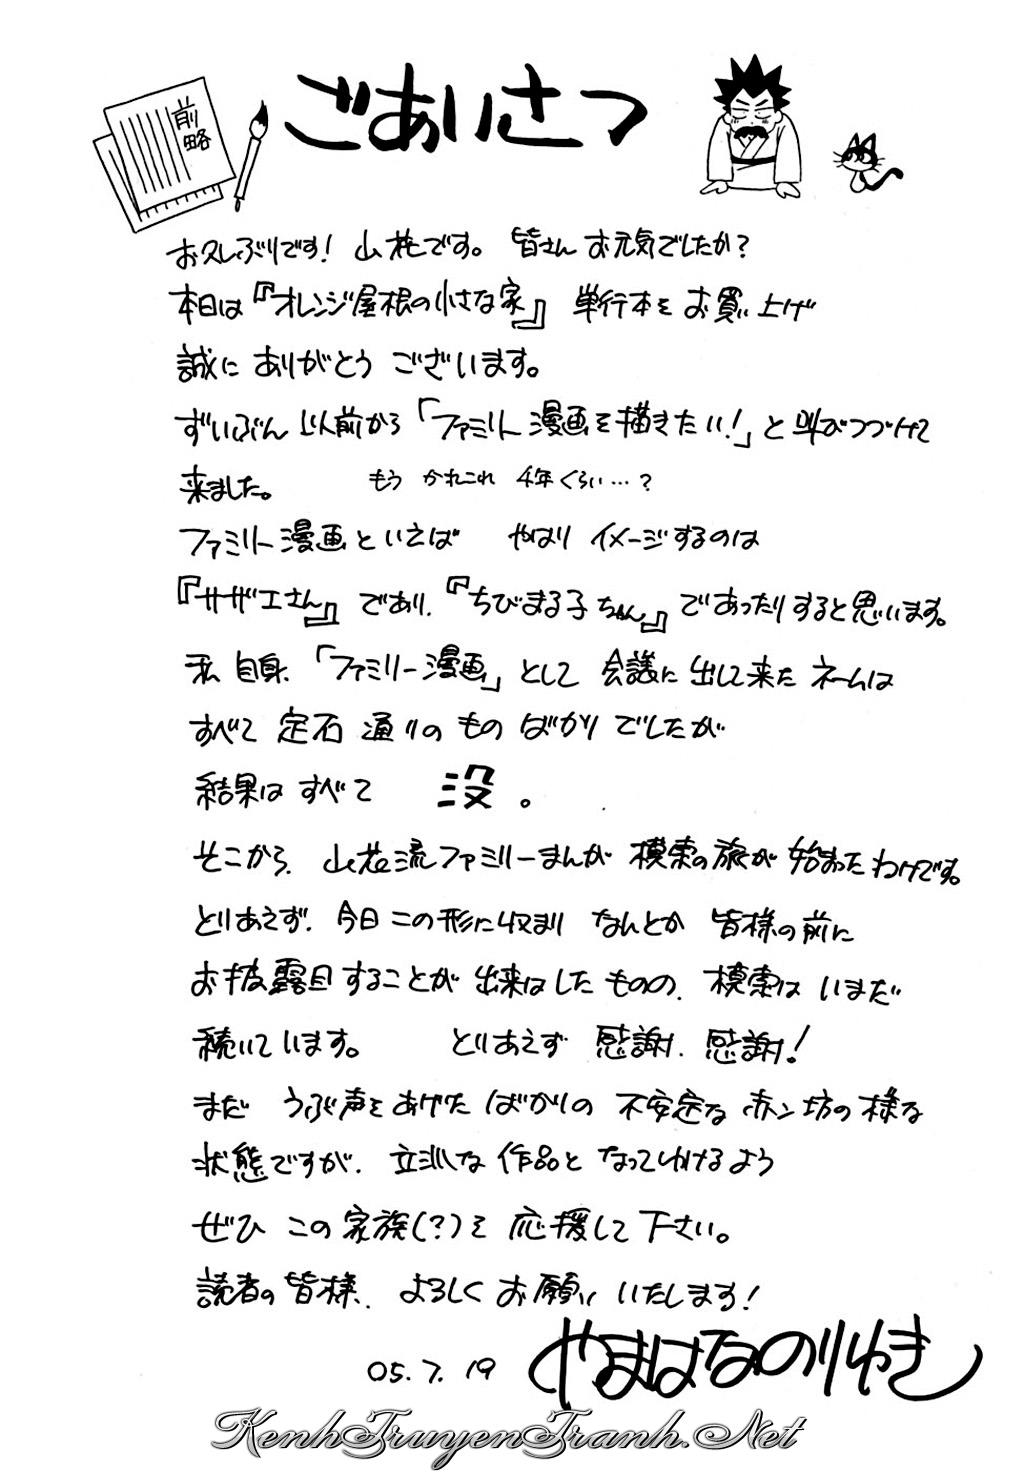 ごあいさつ
前略
お久しぶりです! 山花です。 皆さん お元気でしたか?
本日は『オレンジ屋根の小さな家』 単行本を お買い上げ
誠に ありがとう ございます。
ずいぶん 以前から「ファミリー漫画を描きたい!」と叫びつづけて
来ました。 もう かれこれ 4年くらい…?
ファミリー漫画といえば やはり イメージするのは
『サザエさん』であり、『ちびまる子ちゃん』であったりすると思います。
私自身、「ファミリー漫画」として 会議に出して来た ネームは
すべて 定石通りの もの ばかり でしたが
結果は すべて 没。
そこから、山花流ファミリーまんが 模索の旅が 始まったわけです。
とりあえず、今日この形に収まり なんとか 皆様の前に
お披露目することが 出来はしたものの、模索は いまだ
続いています。 とりあえず 感謝、感謝!
まだ うぶ声をあげた ばかりの 不安定な 赤ン坊の様な
状態ですが、立派な 作品と なってゆけるよう
ぜひ この 家族(?)を 応援して 下さい。
読者の皆様、よろしく お願い いたします!
05.7.19 やまはなのりゆき
KenhTruyenTranh.Net